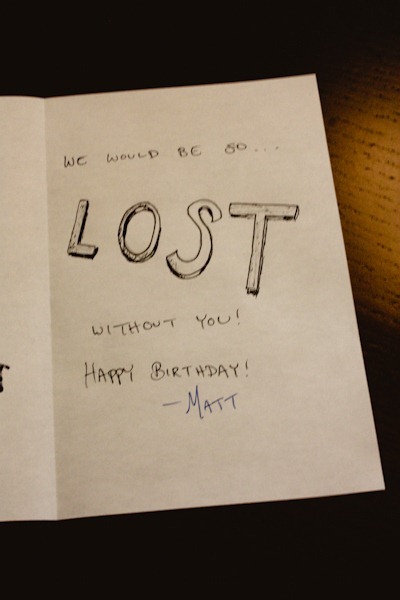 WE WOULD BE SO...
LOST
WITHOUT YOU!
HAPPY BIRTHDAY!
—MATT